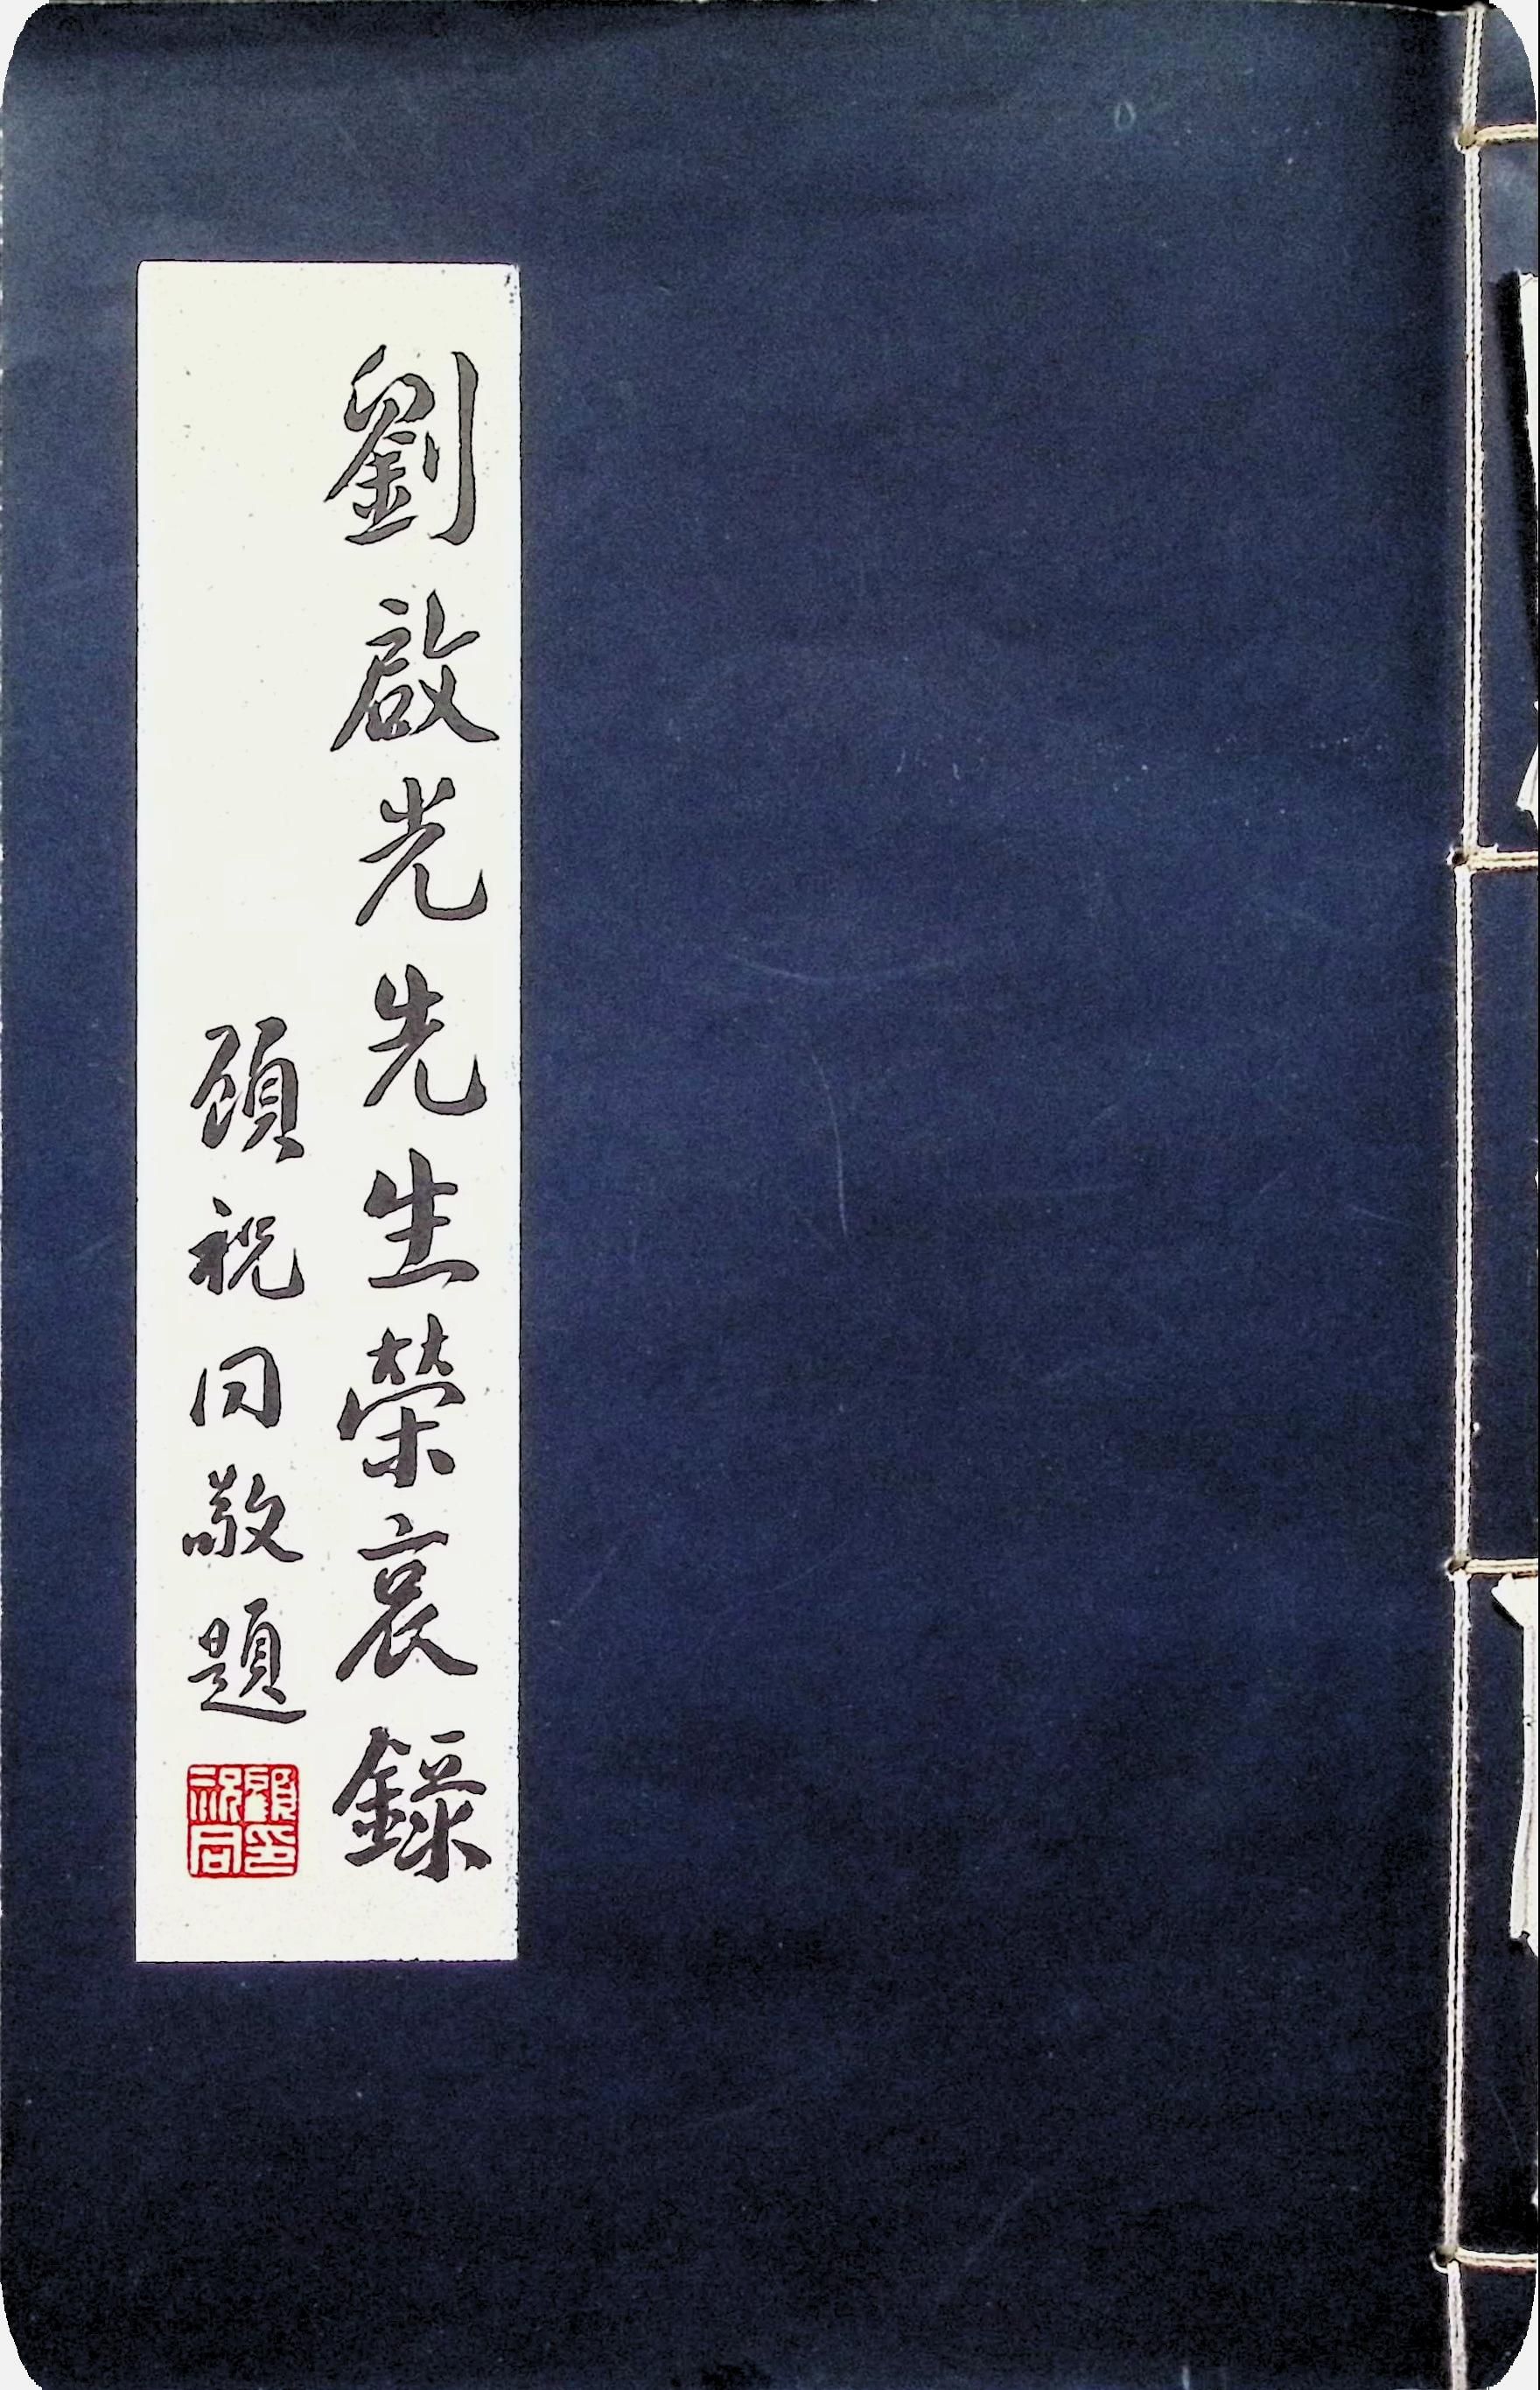 劉啟光先生榮哀錄
顧祝同敬題
顧祝同印